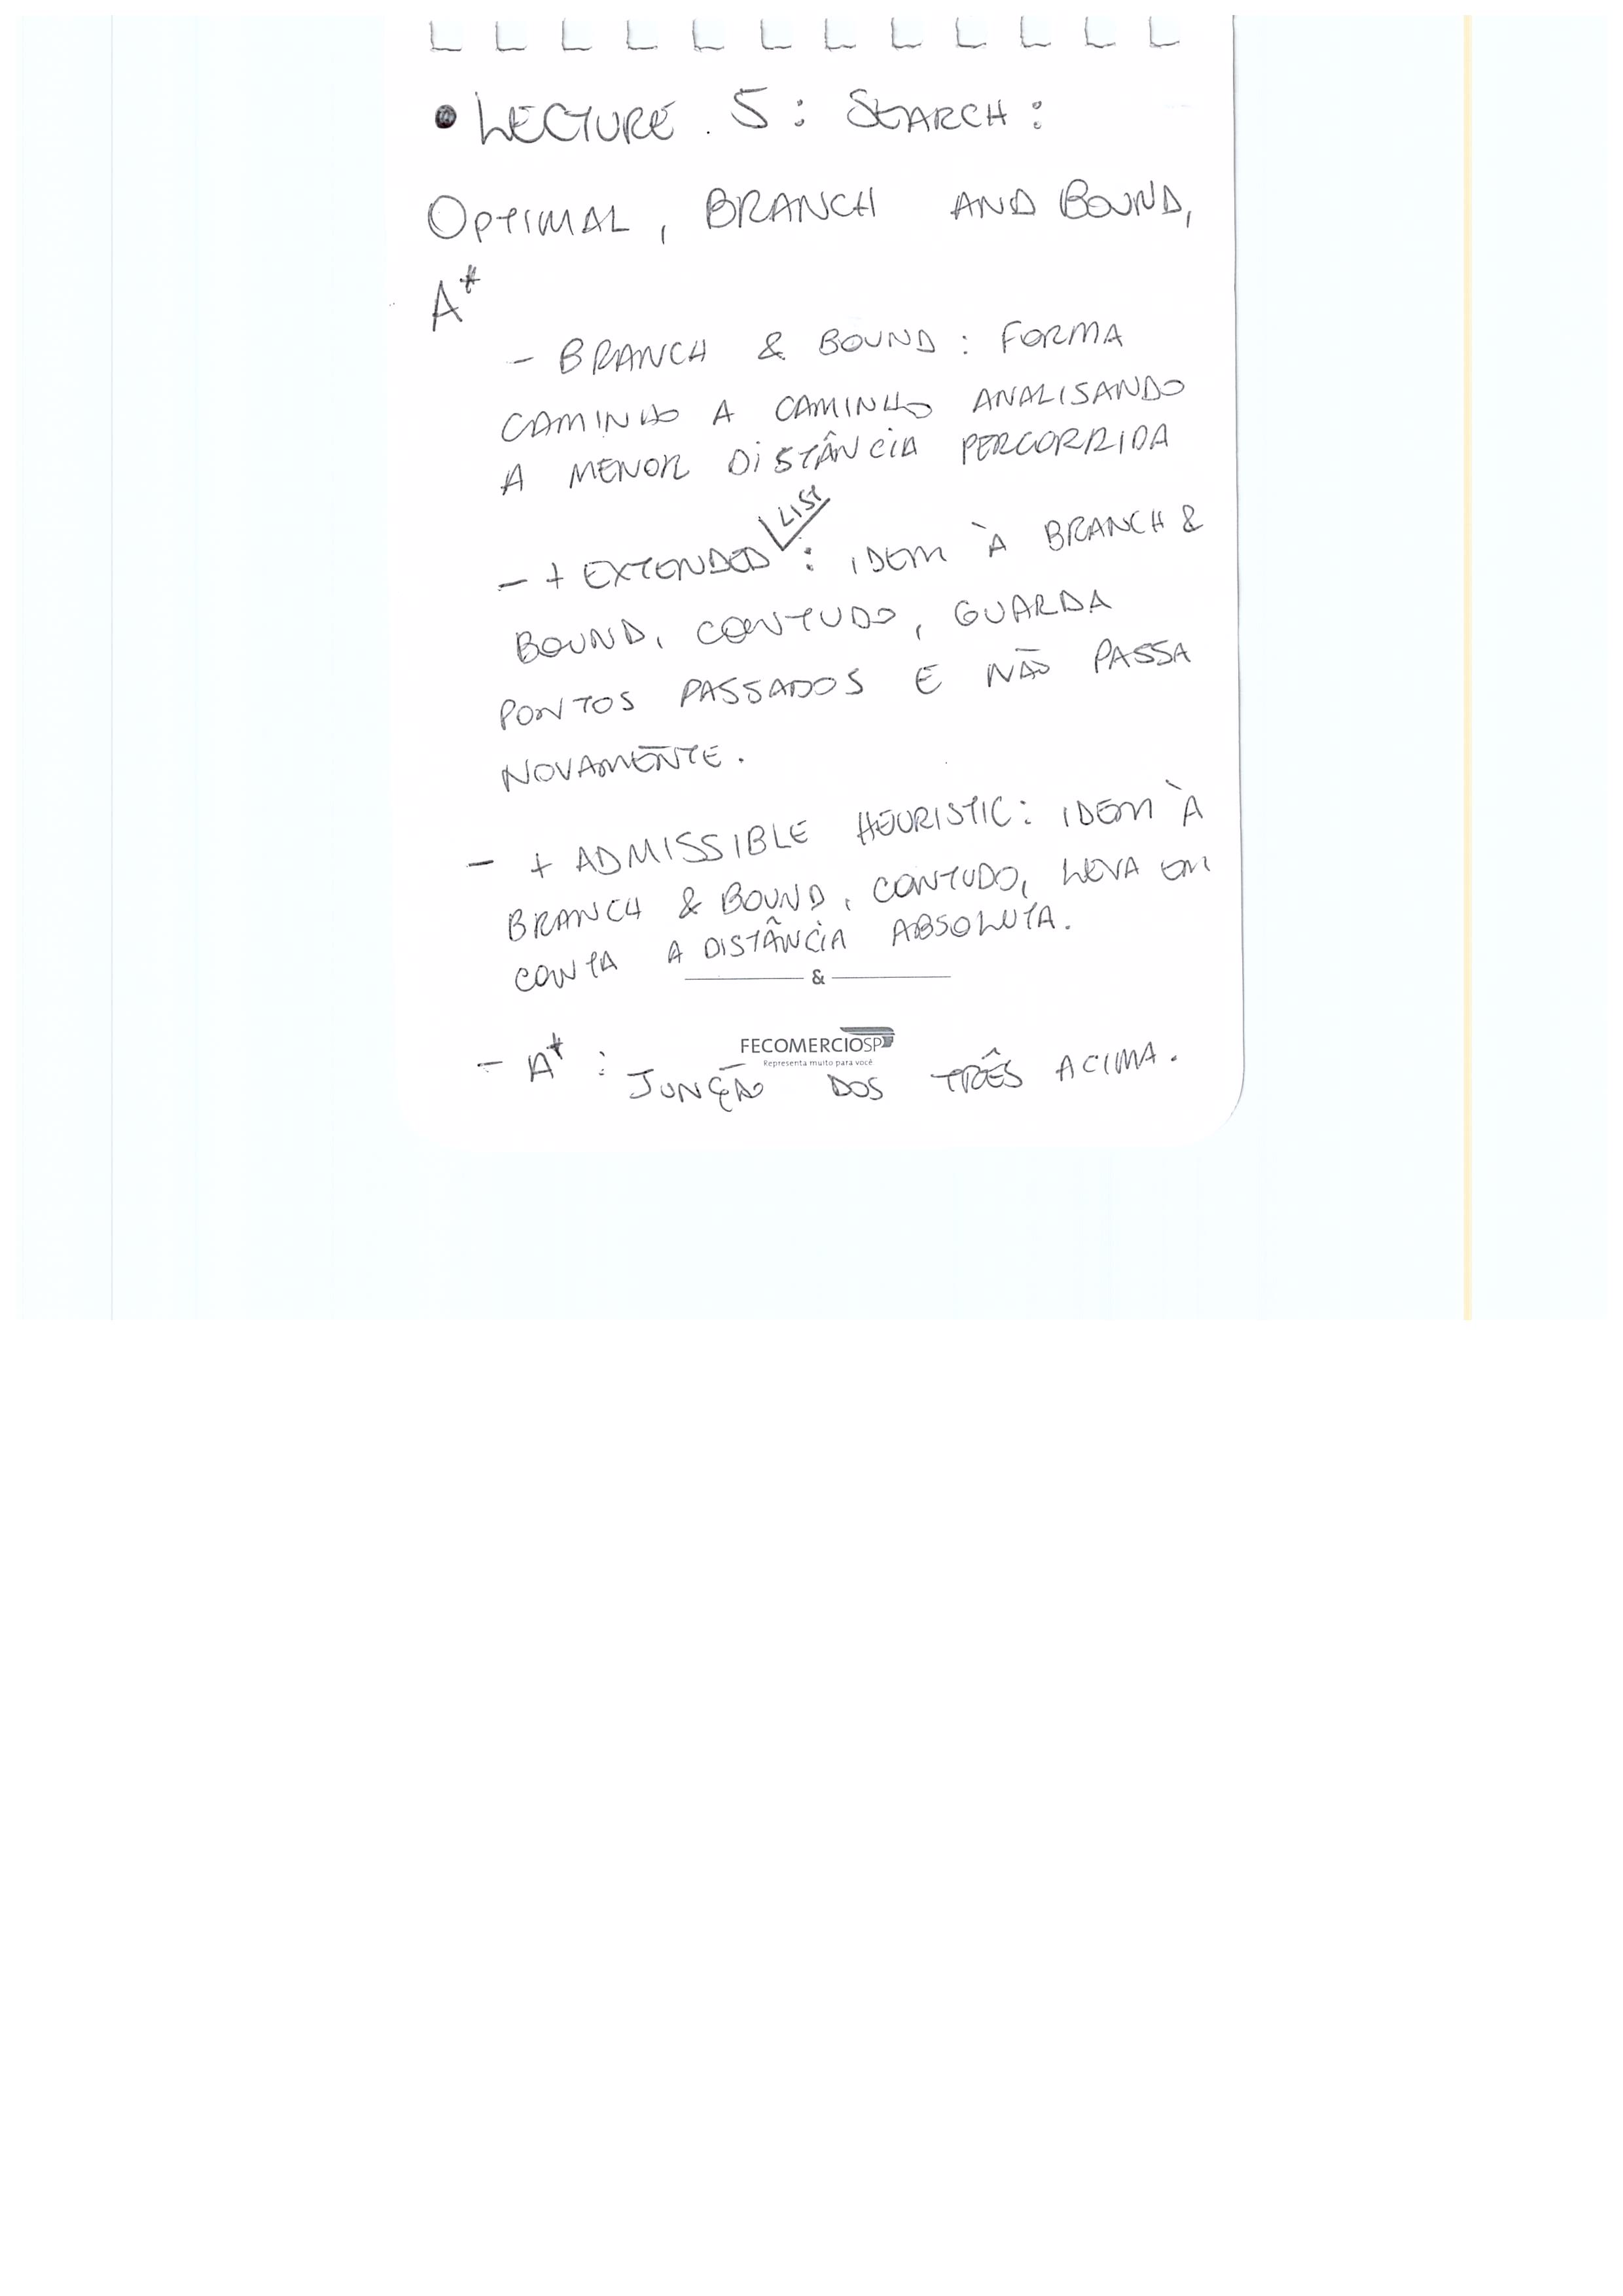 • LECTURE 5: SEARCH:
OPTIMAL, BRANCH AND BOUND,
A*
- BRANCH & BOUND: FORMA
CAMINHO A CAMINHO ANALISANDO
A MENOR DISTÂNCIA PERCORRIDA
LIST
- + EXTENDED : IDEM À BRANCH &
BOUND, CONTUDO, GUARDA
PONTOS PASSADOS E NÃO PASSA
NOVAMENTE.
- + ADMISSIBLE HEURISTIC: IDEM À
BRANCH & BOUND, CONTUDO, LEVA EM
CONTA A DISTÂNCIA ABSOLUTA.
&
FECOMERCIOSP
Representa muito para você
- A* : JUNÇÃO DOS TRÊS ACIMA.